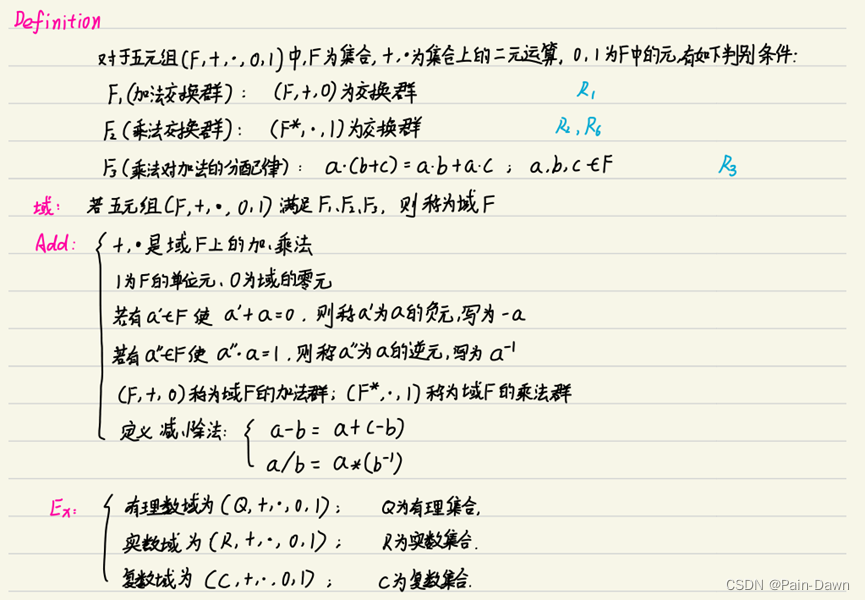 Definition
对于五元组(F,+,·,0,1)中,F为集合,+,·为集合上的二元运算, 0,1为F中的元,有如下判别条件:
F₁(加法交换群): (F,+,0)为交换群 R₁
F₂(乘法交换群): (F*,·,1)为交换群 R₂,R₆
F₃(乘法对加法的分配律): a·(b+c)=a·b+a·c ; a,b,c∈F R₃
域: 若五元组(F,+,·,0,1)满足F₁、F₂、F₃, 则称为域F
Add: +,·是域F上的加、乘法
1为F的单位元、0为域的零元
若有a'∈F使 a'+a=0, 则称a'为a的负元,写为-a
若有a"∈F使 a"·a=1, 则称a"为a的逆元,写为a⁻¹
(F,+,0)称为域F的加法群; (F*,·,1)称为域F的乘法群
定义减、除法: a-b= a+(-b)
a/b= a*(b⁻¹)
Ex: 有理数域为(Q,+,·,0,1); Q为有理集合,
实数域为(R,+,·,0,1); R为实数集合.
复数域为(C,+,·,0,1); C为复数集合.
CSDN @Pain-Dawn